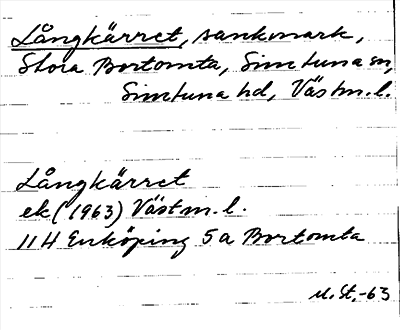 Långkärret, sankmark,
Stora Bortomta, Simtuna sn,
Simtuna hd, Västm.l.
Långkärret
ek (1963) Västm.l.
11 H Enköping 5 a Bortomta
M.St.-63